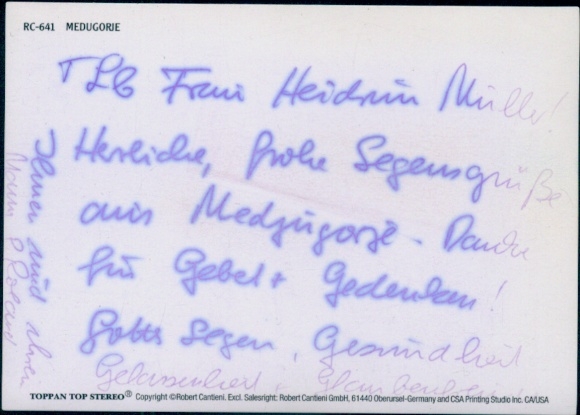 RC-641 MEDUGORJE
Lb Frau Heidrun Müller!
Herzliche, frohe Segensgrüße
aus Medzugorje. Danke
für Gebet + Gedenken!
Gottes Segen, Gesundheit
Gelassenheit + Glaubens
Ihnen und ihren
TOPPAN TOP STEREO® Copyright ©Robert Cantieni. Excl. Salesright: Robert Cantieni GmbH, 61440 Oberursel-Germany and CSA Printing Studio Inc. CA/USA